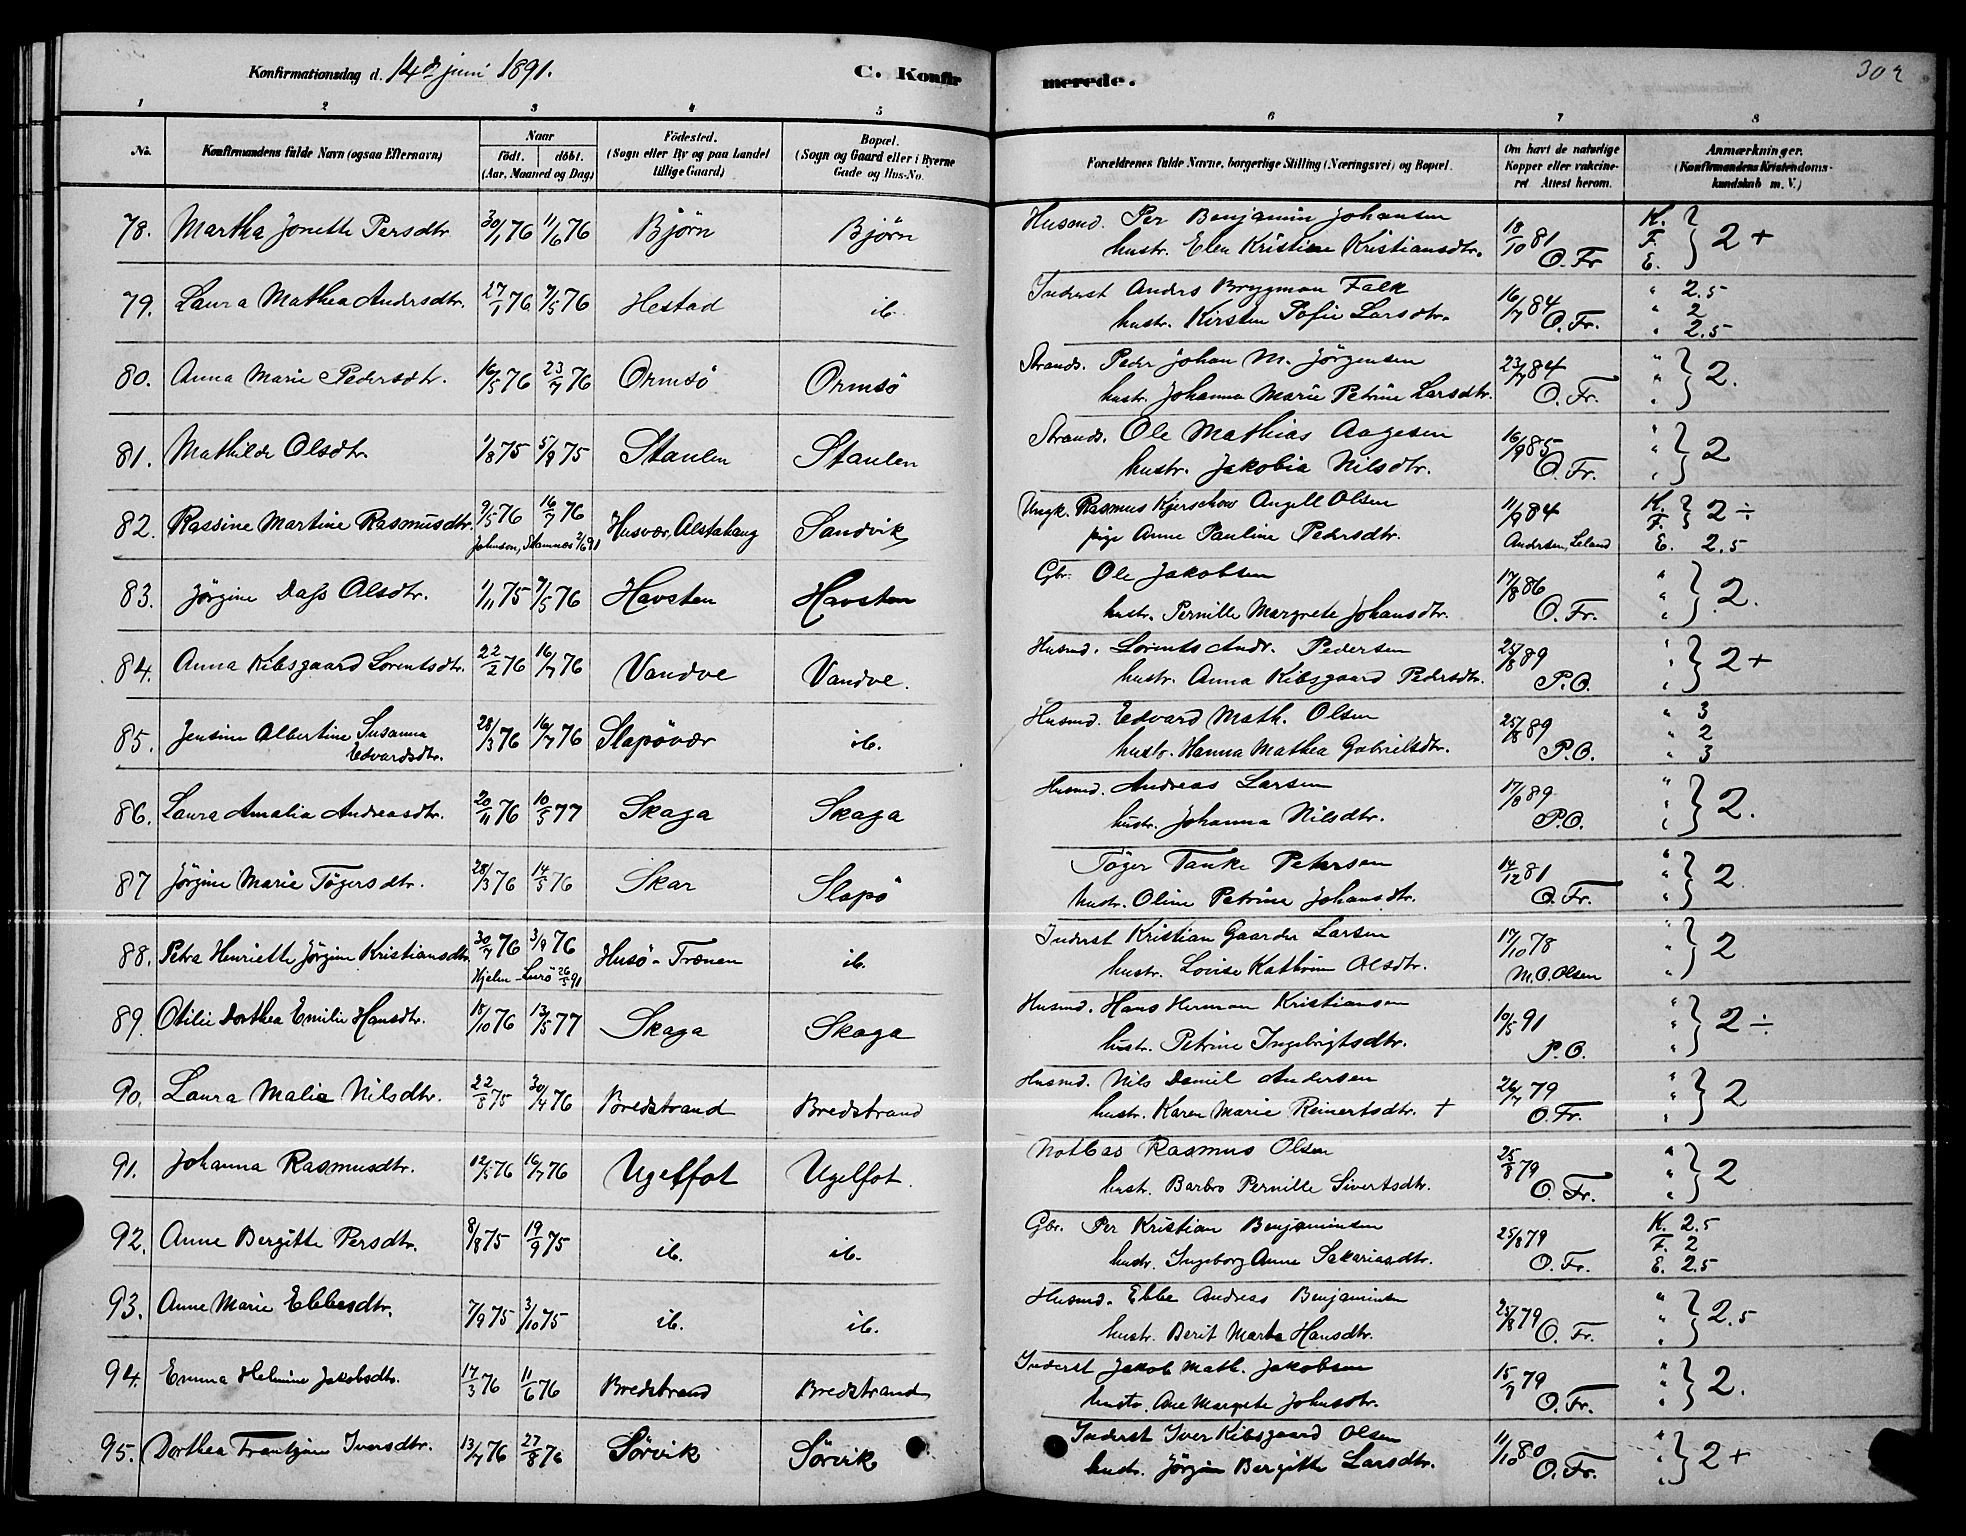 Konfirmationsdag d. 14de juni 1891. C. Konfirmerede. 302
1 2 3 4 5 6 7 8
No. Konfirmandens fulde Navn (ogsaa Efternavn) Naar født. døbt. (Aar, Maaned og Dag) Fødested. (Sogn eller By og paa Landet tillige Gaard) Bopæl. (Sogn og Gaard eller i Byerne Gade og Hus-No. Forældrenes fulde Navne, borgerlige Stilling (Næringsvei) og Bopæl. Om havt de naturlige Kopper eller vakcineret Attest herom. Anmærkninger. (Konfirmandens Kristendomskundskab m. V.)
78. Martha Jonette Persdtr. 30/1 76 11/6 76 Bjørn Bjørn Husmd. Per Benjamin Johansen 18/10 81 K. F. E. } 2 +
hustr. Elen Kristine Kristiansdtr. O. Fr.
79. Laura Mathea Andersdtr. 27/1 76 7/5 76 Hestad ib. Inderst Anders Bryggman Falk 16/7 84 " 2.5
hustr. Kirsten Sofie Larsdtr. O. Fr. " 2
" 2.5
80. Anna Marie Pedersdtr. 16/5 76 23/7 76 Ormsö Ormsö Strands. Peder Johan M. Jörgensen 23/7 84 " } 2.
hustr. Johanna Marie Petrine Larsdtr. O. Fr.
81. Mathilde Olsdtr. 1/8 75 5/9 75 Staulen Staulen Strands. Ole Mathias Aagesen 16/9 85 " } 2
hustr. Jakobia Nilsdtr. O. Fr.
82. Rassine Martine Rasmusdtr. 9/5 76 16/7 76 Husvær, Alstahaug Sandvik Ungk. Rasmus Kjerschow Angell Olsen 11/9 84 K. F. } 2 ÷
Johnson, Stamnes 2/6 91 pige Anne Pauline Pedersdtr. Andersen, Leland E. 2.5
83. Jörgine Dass Olsdtr. 1/11 75 7/5 76 Havsten Havsten Gbr. Ole Jakobsen 17/8 86 " } 2.
hustr. Pernille Margrete Johansdtr. O. Fr.
84. Anna Kibsgaard Lorentsdtr. 22/2 76 16/7 76 Vandve Vandve. Husmd. Lorents Andr. Pedersen 25/8 89 " } 2 +
hustr. Anna Kibsgaard Pedersdtr. P.O.
85. Jensine Albertine Susanna 28/3 76 16/7 76 Slapövær ib. Husmd. Edvard Math. Olsen 25/8 89 " 3
Edvardsdtr. hustr. Hanna Mathea Gabrielsdtr. P.O. " 2
" 3
86. Laura Amalia Andreasdtr. 20/11 76 10/5 77 Skaga Skaga Husmd. Andreas Larsen 17/8 89 " } 2.
hustr. Johanna Nilsdtr. P.O.
87 Jörgine Marie Tögersdtr. 28/3 76 14/5 76 Skar Slapö Töger Tanke Petersen 14/12 81 " } 2.
hustr. Oline Petrine Johansdtr. O. Fr.
88. Petra Henriette Jörgine Kristiansdtr. 30/7 76 3/9 76 Husö - Trænen ib. Inderst Kristian Gaarder Larsen 17/10 78 " } 2
Hjelm - Lurö 26/5 91 hustr. Lovise Kathrine Olsdtr. M.O. Olsen
89. Otilie Dorthea Emilie Hansdtr. 15/10 76 13/5 77 Skaga Skaga Husmd. Hans Herman Kristiansen 10/5 91 " } 2 ÷
hustr. Petrine Ingebrigtsdtr. P.O.
90. Laura Malie Nilsdtr. 22/8 75 30/4 76 Bredstrand Bredstrand Husmd. Nils Daniel Andersen 26/7 79 " } 2
hustr. Karen Marie Reinertsdtr. + O. Fr.
91. Johanna Rasmusdtr. 12/5 76 16/7 76 Ugelfot Ugelfot. Notbas Rasmus Olsen 25/8 79 " } 2
hustr. Barbro Pernille Sivertsdtr. O. Fr.
92. Anne Bergitte Persdtr. 8/8 75 19/9 75 ib. ib. Gbr. Per Kristian Benjaminsen 25/8 79 K. 2.5
hustr. Ingeborg Anne Sakariasdtr. O. Fr. F. 2
E. 2.5
93. Anne Marie Ebbesdtr. 7/9 75 3/10 75 ib. ib. Husmd. Ebbe Andreas Benjaminsen 25/8 79 " } 2.5
hustr. Berit Marta Hansdtr. O. Fr.
94. Emma Helmine Jakobsdtr. 17/3 76 11/6 76 Bredstrand Bredstrand Inderst Jakob Math. Jakobsen 15/7 79 " } 2.
hustr. Ane Margrete Johnsdtr. O. Fr.
95. Dorthea Frantzine Iversdtr. 13/7 76 27/8 76 Sörvik Sörvik Inderst Iver Kibsgaard Olsen 11/10 80 " } 2 +
hustr. Jörgine Bergitte Larsdtr. O. Fr.